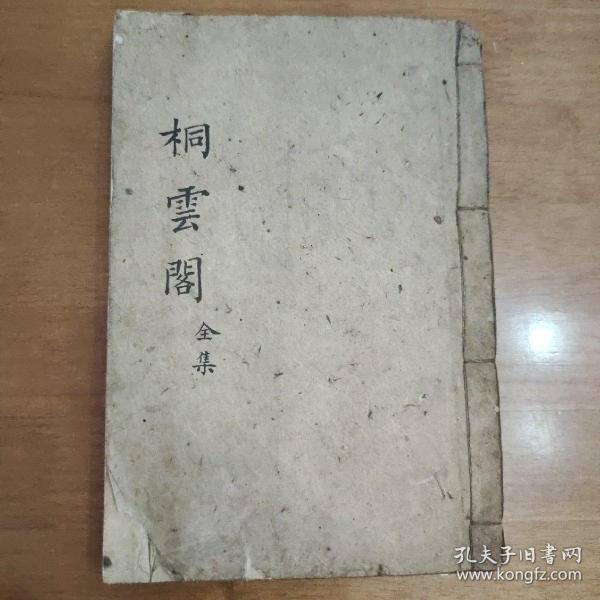 桐雲閣
全集
孔夫子旧書网
www.kongfz.com